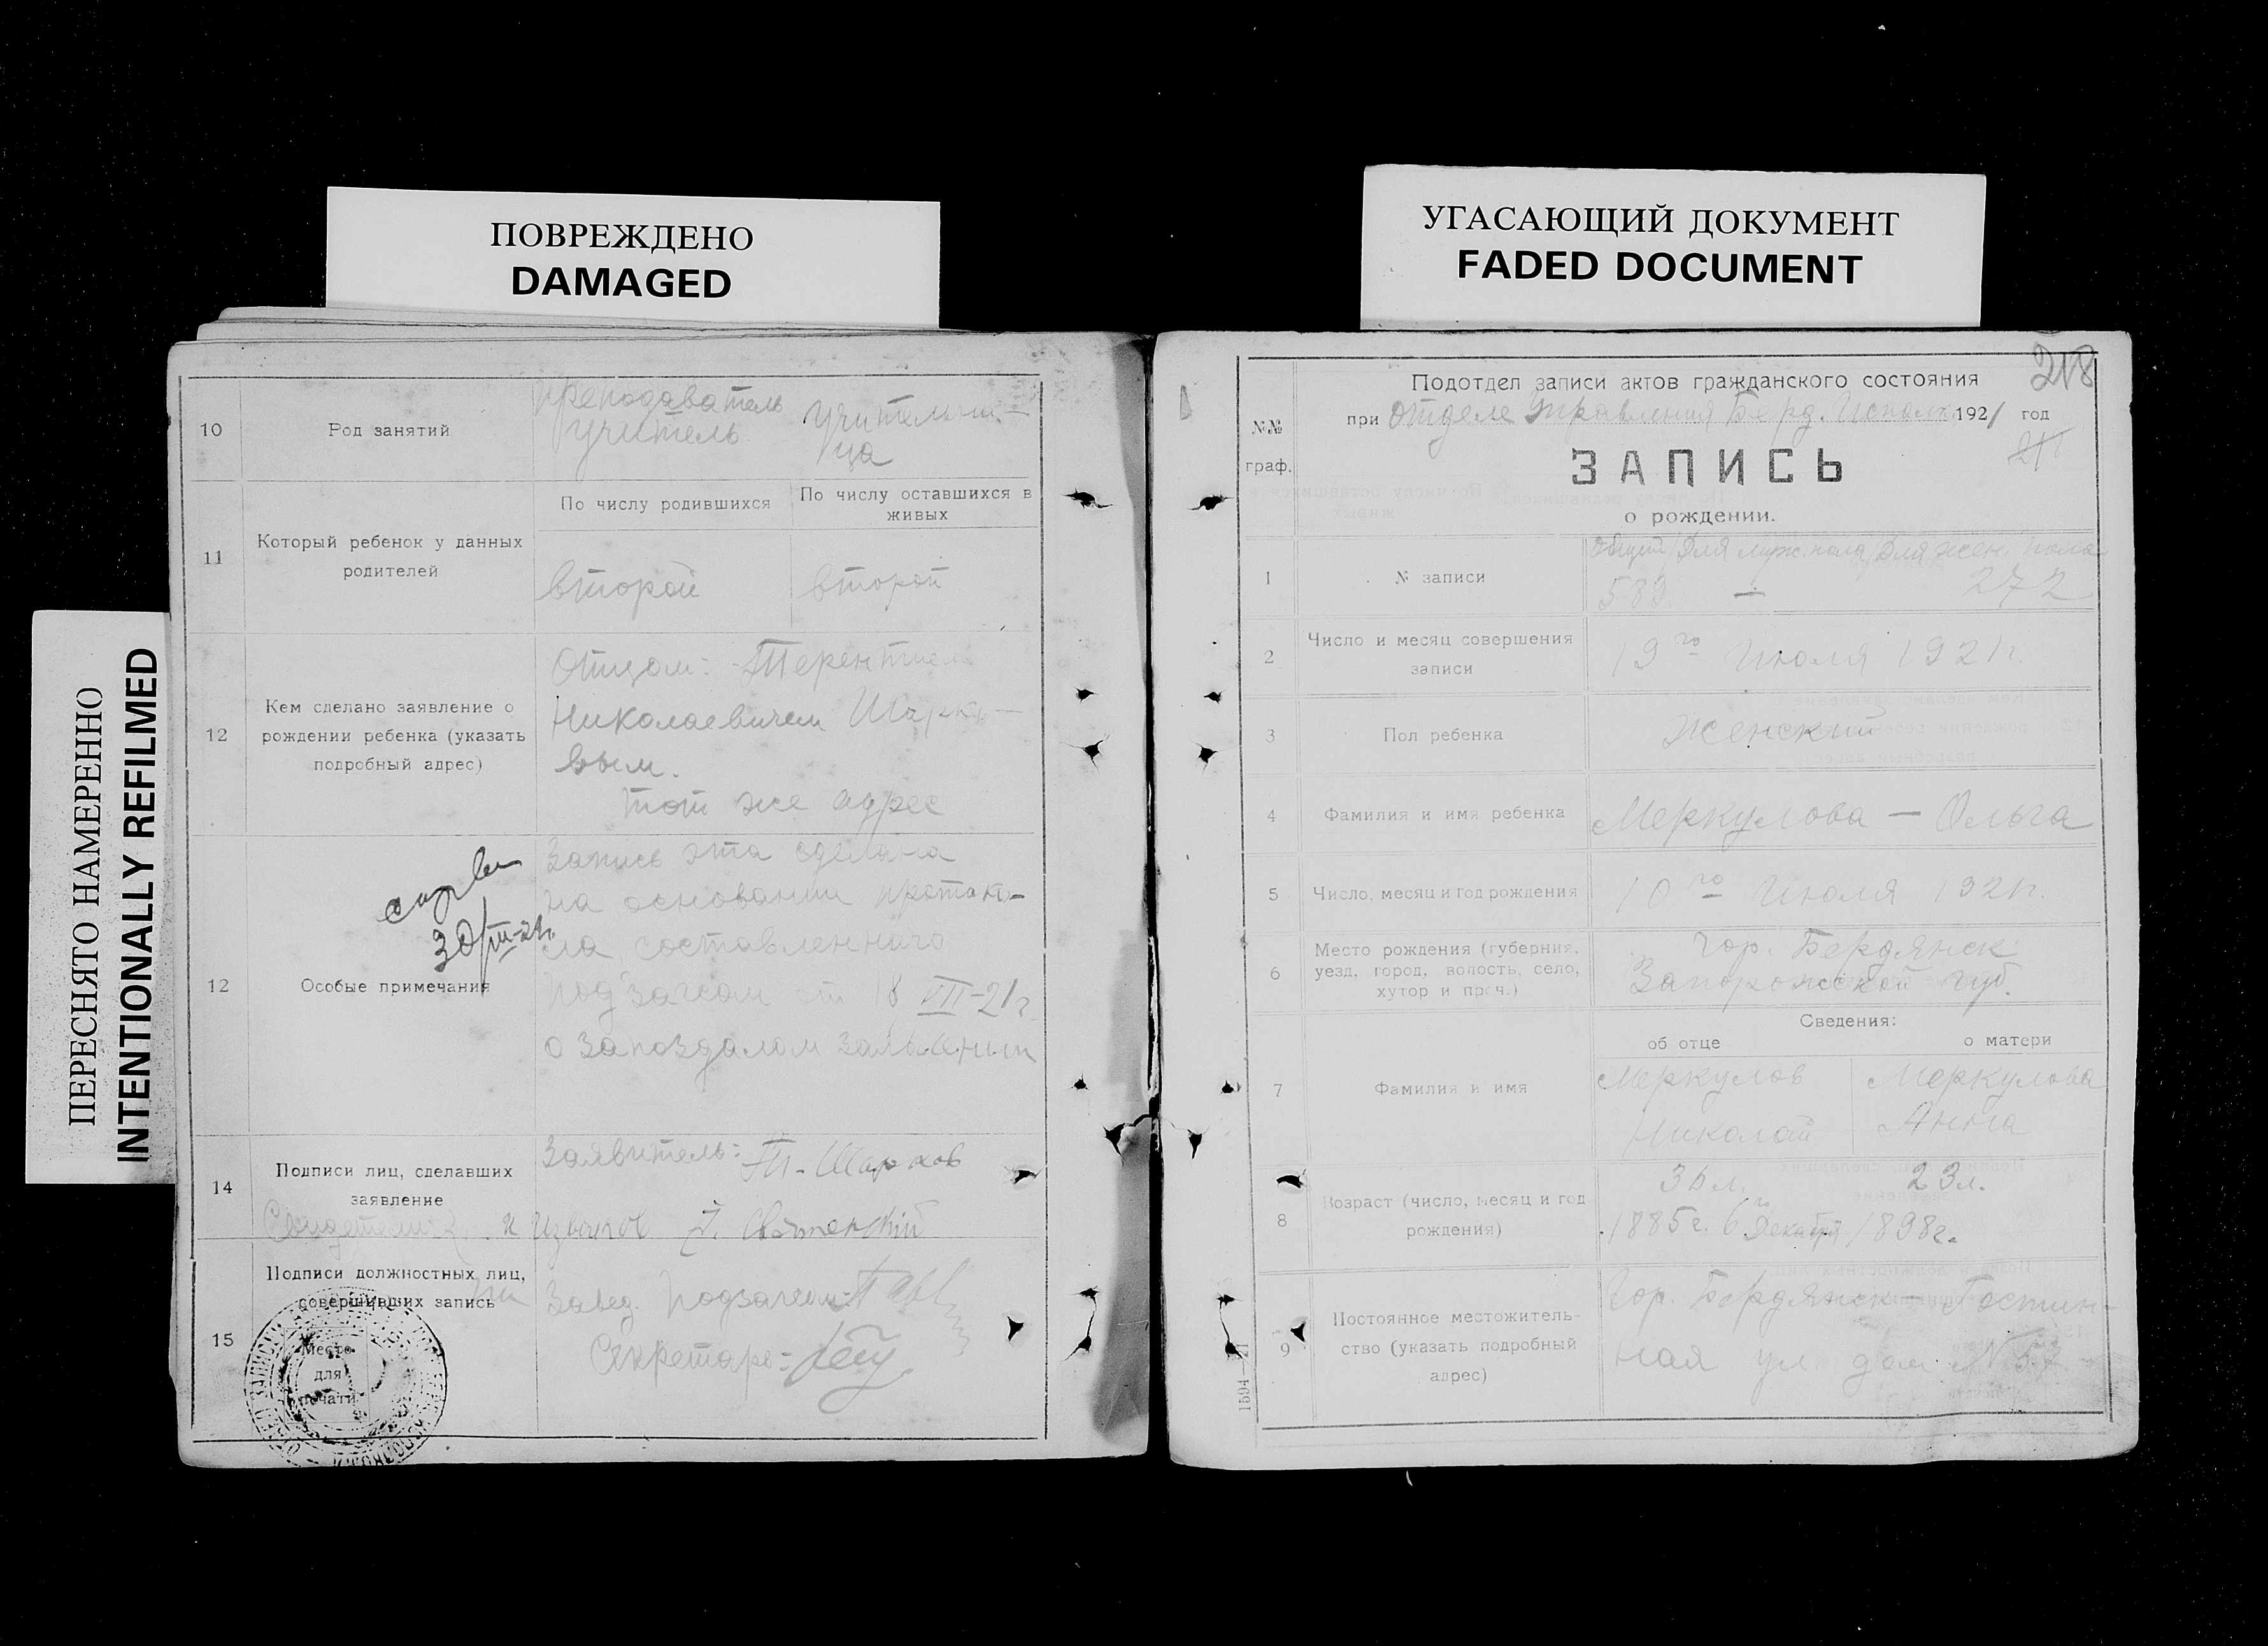 ПОВРЕЖДЕНО
DAMAGED
УГАСАЮЩИЙ ДОКУМЕНТ
FADED DOCUMENT
ПЕРЕСНЯТО НАМЕРЕННО
INTENTIONALLY REFILMED
10
Род занятий
преподаватель
учитель
учительни-
ца
11
Который ребенок у данных
родителей
По числу родившихся
По числу оставшихся в
живых
второй
второй
12
Кем сделано заявление о
рождении ребенка (указать
подробный адрес)
Отцом: Терентием
Николаевичем Шарко-
вым.
тот же адрес
12
Особые примечания
30/III-21г.
Запись эта сделана
на основании протоко-
ла составленного
под'загсом от 18 VII-21г
о запоздалом заявлении
14
Подписи лиц, сделавших
заявление
Заявитель: Т. Шарков
Свидетели:
15
Подписи должностных лиц,
совершивших запись
Место
для
печати
Завед. Подзагсом:
Секретарь:
218
Подотдел записи актов гражданского состояния
при Отделе Управления Берд. Исполк. 1921 год
№№
граф.
ЗАПИСЬ
о рождении.
1
№ записи
Общий/Для муж. пола/Для жен. пола
583 — 272
2
Число и месяц совершения
записи
19го Июля 1921г.
3
Пол ребенка
Женский
4
Фамилия и имя ребенка
Меркулова — Ольга
5
Число, месяц и год рождения
10го Июля 1921г.
6
Место рождения (губерния,
уезд, город, волость, село,
хутор и проч.)
Гор. Бердянск
Запорожской губ.
Сведения:
об отце
о матери
7
Фамилия и имя
Меркулов
Николай
Меркулова
Анна
8
Возраст (число, месяц и год
рождения)
36 л.
23 л.
1885г. 6го Декабря
1898г.
9
Постоянное местожитель-
ство (указать подробный
адрес)
Гор. Бердянск — Гостин-
ная ул дом № 57
1594